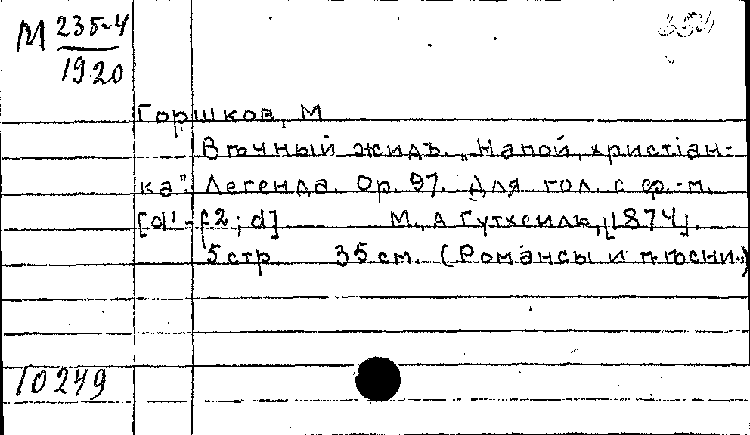 М 235-4
1920
Горшков, М
Вѣчный жидъ. „Напой, христіан-
ка". Легенда. Op. 97. Для гол. с ф.-п.
[d¹-f2; d] М., А Гутхейль, [1874].
5 стр 35 см. (Романсы и пѣсни.)
10249